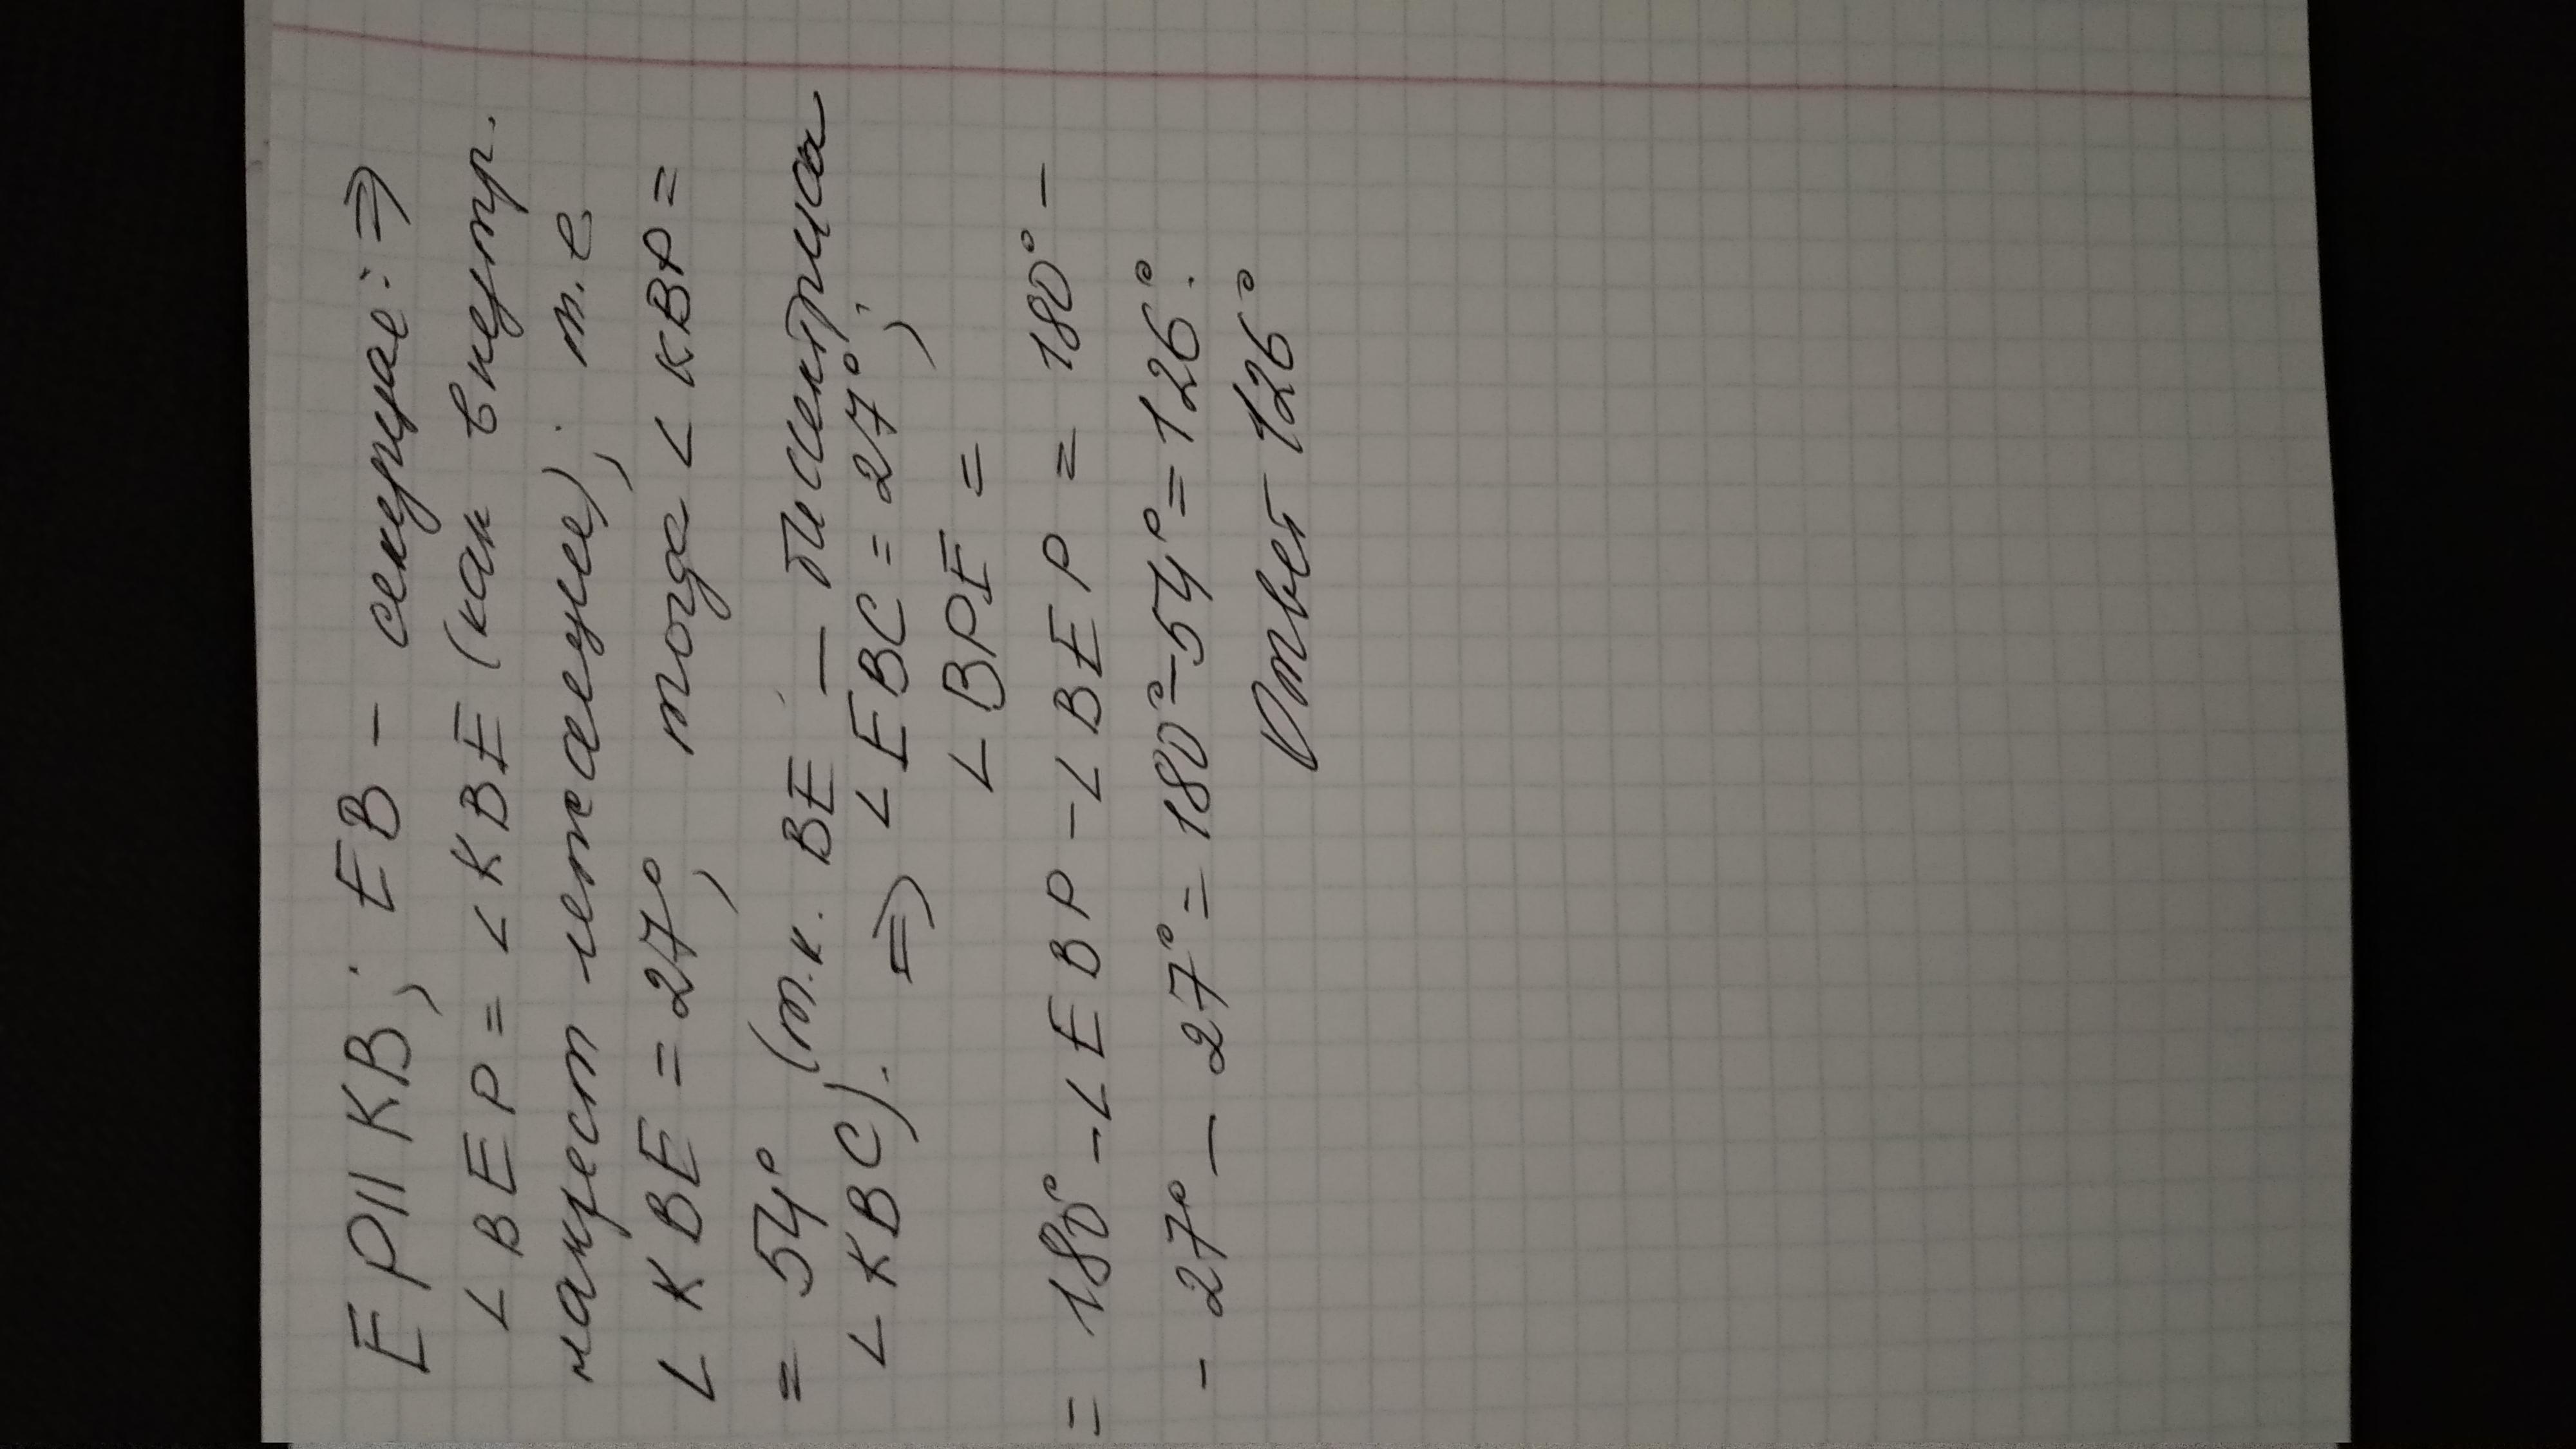 EP || KB; EB - секущая: ⇒
∠BEP = ∠KBE (как внутр.
накрест лежащие); т.е
∠KBE = 27°, тогда ∠KBP =
= 54° (т.к. BE — биссектриса
∠KBC). ⇒ ∠EBC = 27°;
∠BPE =
= 180° - ∠EBP - ∠BEP = 180° -
- 27° - 27° = 180° - 54° = 126°.
Ответ 126°